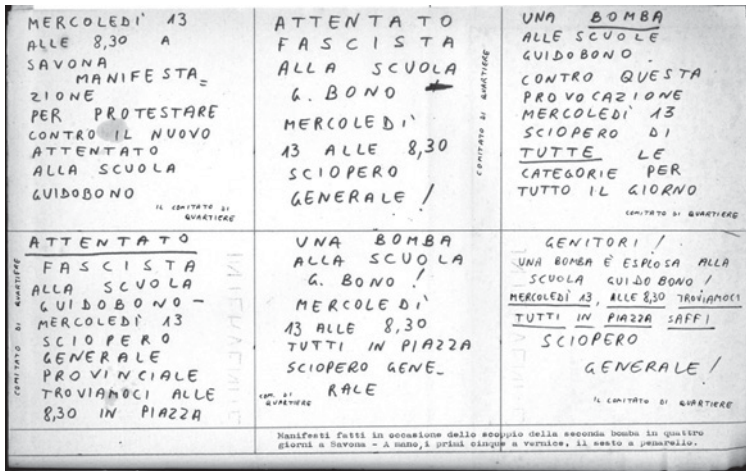 MERCOLEDÌ 13
ALLE 8,30 A
SAVONA
MANIFESTA=
ZIONE
PER PROTESTARE
CONTRO IL NUOVO
ATTENTATO
ALLA SCUOLA
GUIDOBONO
IL COMITATO DI
QUARTIERE
ATTENTATO
FASCISTA
ALLA SCUOLA
G. BONO
MERCOLEDÌ
13 ALLE 8,30
SCIOPERO
GENERALE!
COMITATO DI QUARTIERE
UNA BOMBA
ALLE SCUOLE
GUIDOBONO.
CONTRO QUESTA
PROVOCAZIONE
MERCOLEDÌ 13
SCIOPERO DI
TUTTE LE
CATEGORIE PER
TUTTO IL GIORNO
COMITATO DI QUARTIERE
ATTENTATO
FASCISTA
ALLA SCUOLA
GUIDOBONO-
MERCOLEDÌ 13
SCIOPERO
GENERALE
PROVINCIALE
TROVIAMOCI ALLE
8,30 IN PIAZZA
COMITATO DI QUARTIERE
UNA BOMBA
ALLA SCUOLA
G. BONO!
MERCOLEDÌ
13 ALLE 8,30
TUTTI IN PIAZZA
SCIOPERO GENE_
RALE
COM. DI
QUARTIERE
GENITORI!
UNA BOMBA È ESPLOSA ALLA
SCUOLA GUIDO BONO!
MERCOLEDÌ 13, ALLE 8,30 TROVIAMOCI
TUTTI IN PIAZZA SAFFI
SCIOPERO
GENERALE!
IL COMITATO DI QUARTIERE
Manifesti fatti in occasione dello scoppio della seconda bomba in quattro
giorni a Savona - A mano, i primi cinque a vernice, il sesto a penarello.